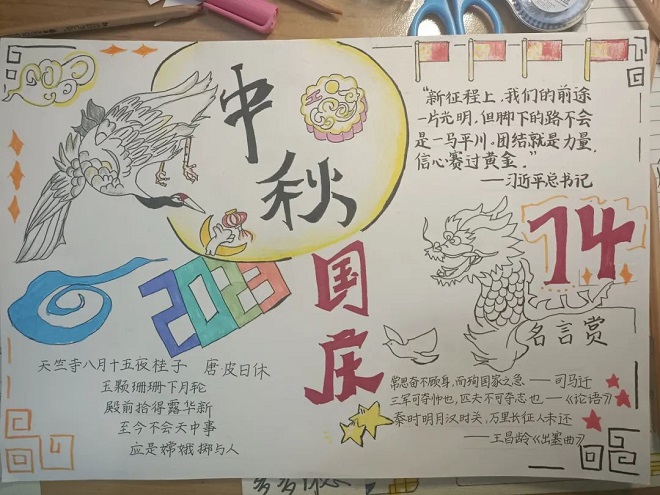 中秋
"新征程上,我们的前途
一片光明,但脚下的路不会
是一马平川。团结就是力量,
信心赛过黄金。"
——习近平总书记
74
2023
国庆
名言赏
天竺寺八月十五夜桂子 唐·皮日休
玉颗珊珊下月轮
殿前拾得露华新
至今不会天中事
应是嫦娥掷与人
常思奋不顾身,而殉国家之急 ——司马迁
三军可夺帅也,匹夫不可夺志也 ——《论语》
秦时明月汉时关,万里长征人未还
——王昌龄《出塞曲》